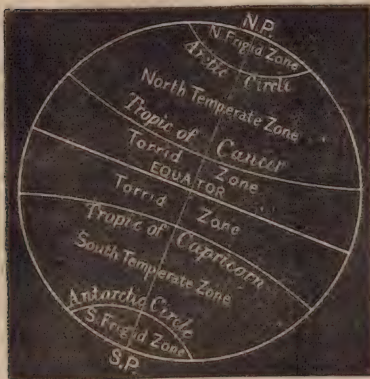 N.P.
N. Frigid Zone
Arctic Circle
North Temperate Zone
Tropic of Cancer
Torrid Zone
EQUATOR
Torrid Zone
Tropic of Capricorn
South Temperate Zone
Antarctic Circle
S. Frigid Zone
S.P.